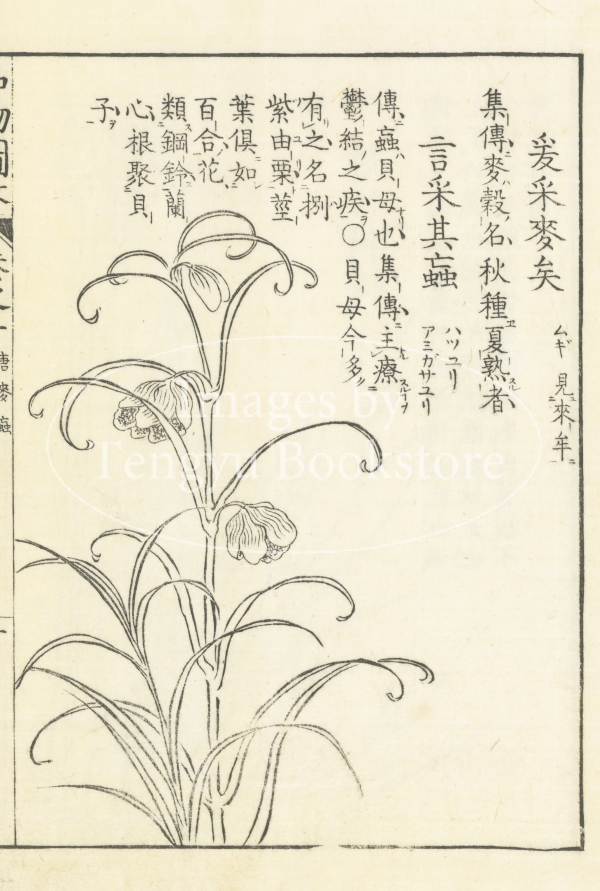 爰采麥矣 ムギ 見來牟
集傳麥穀名秋種夏熟者
言采其蝱 ハツユリ アミガサユリ
傳蝱貝母也集傳主療
鬱結之疾〇貝母今多
有之名捌
紫由栗莖
葉俱如
百合花
類鋼鈴蘭
心根聚貝
子
Images by
Tengyu Bookstore